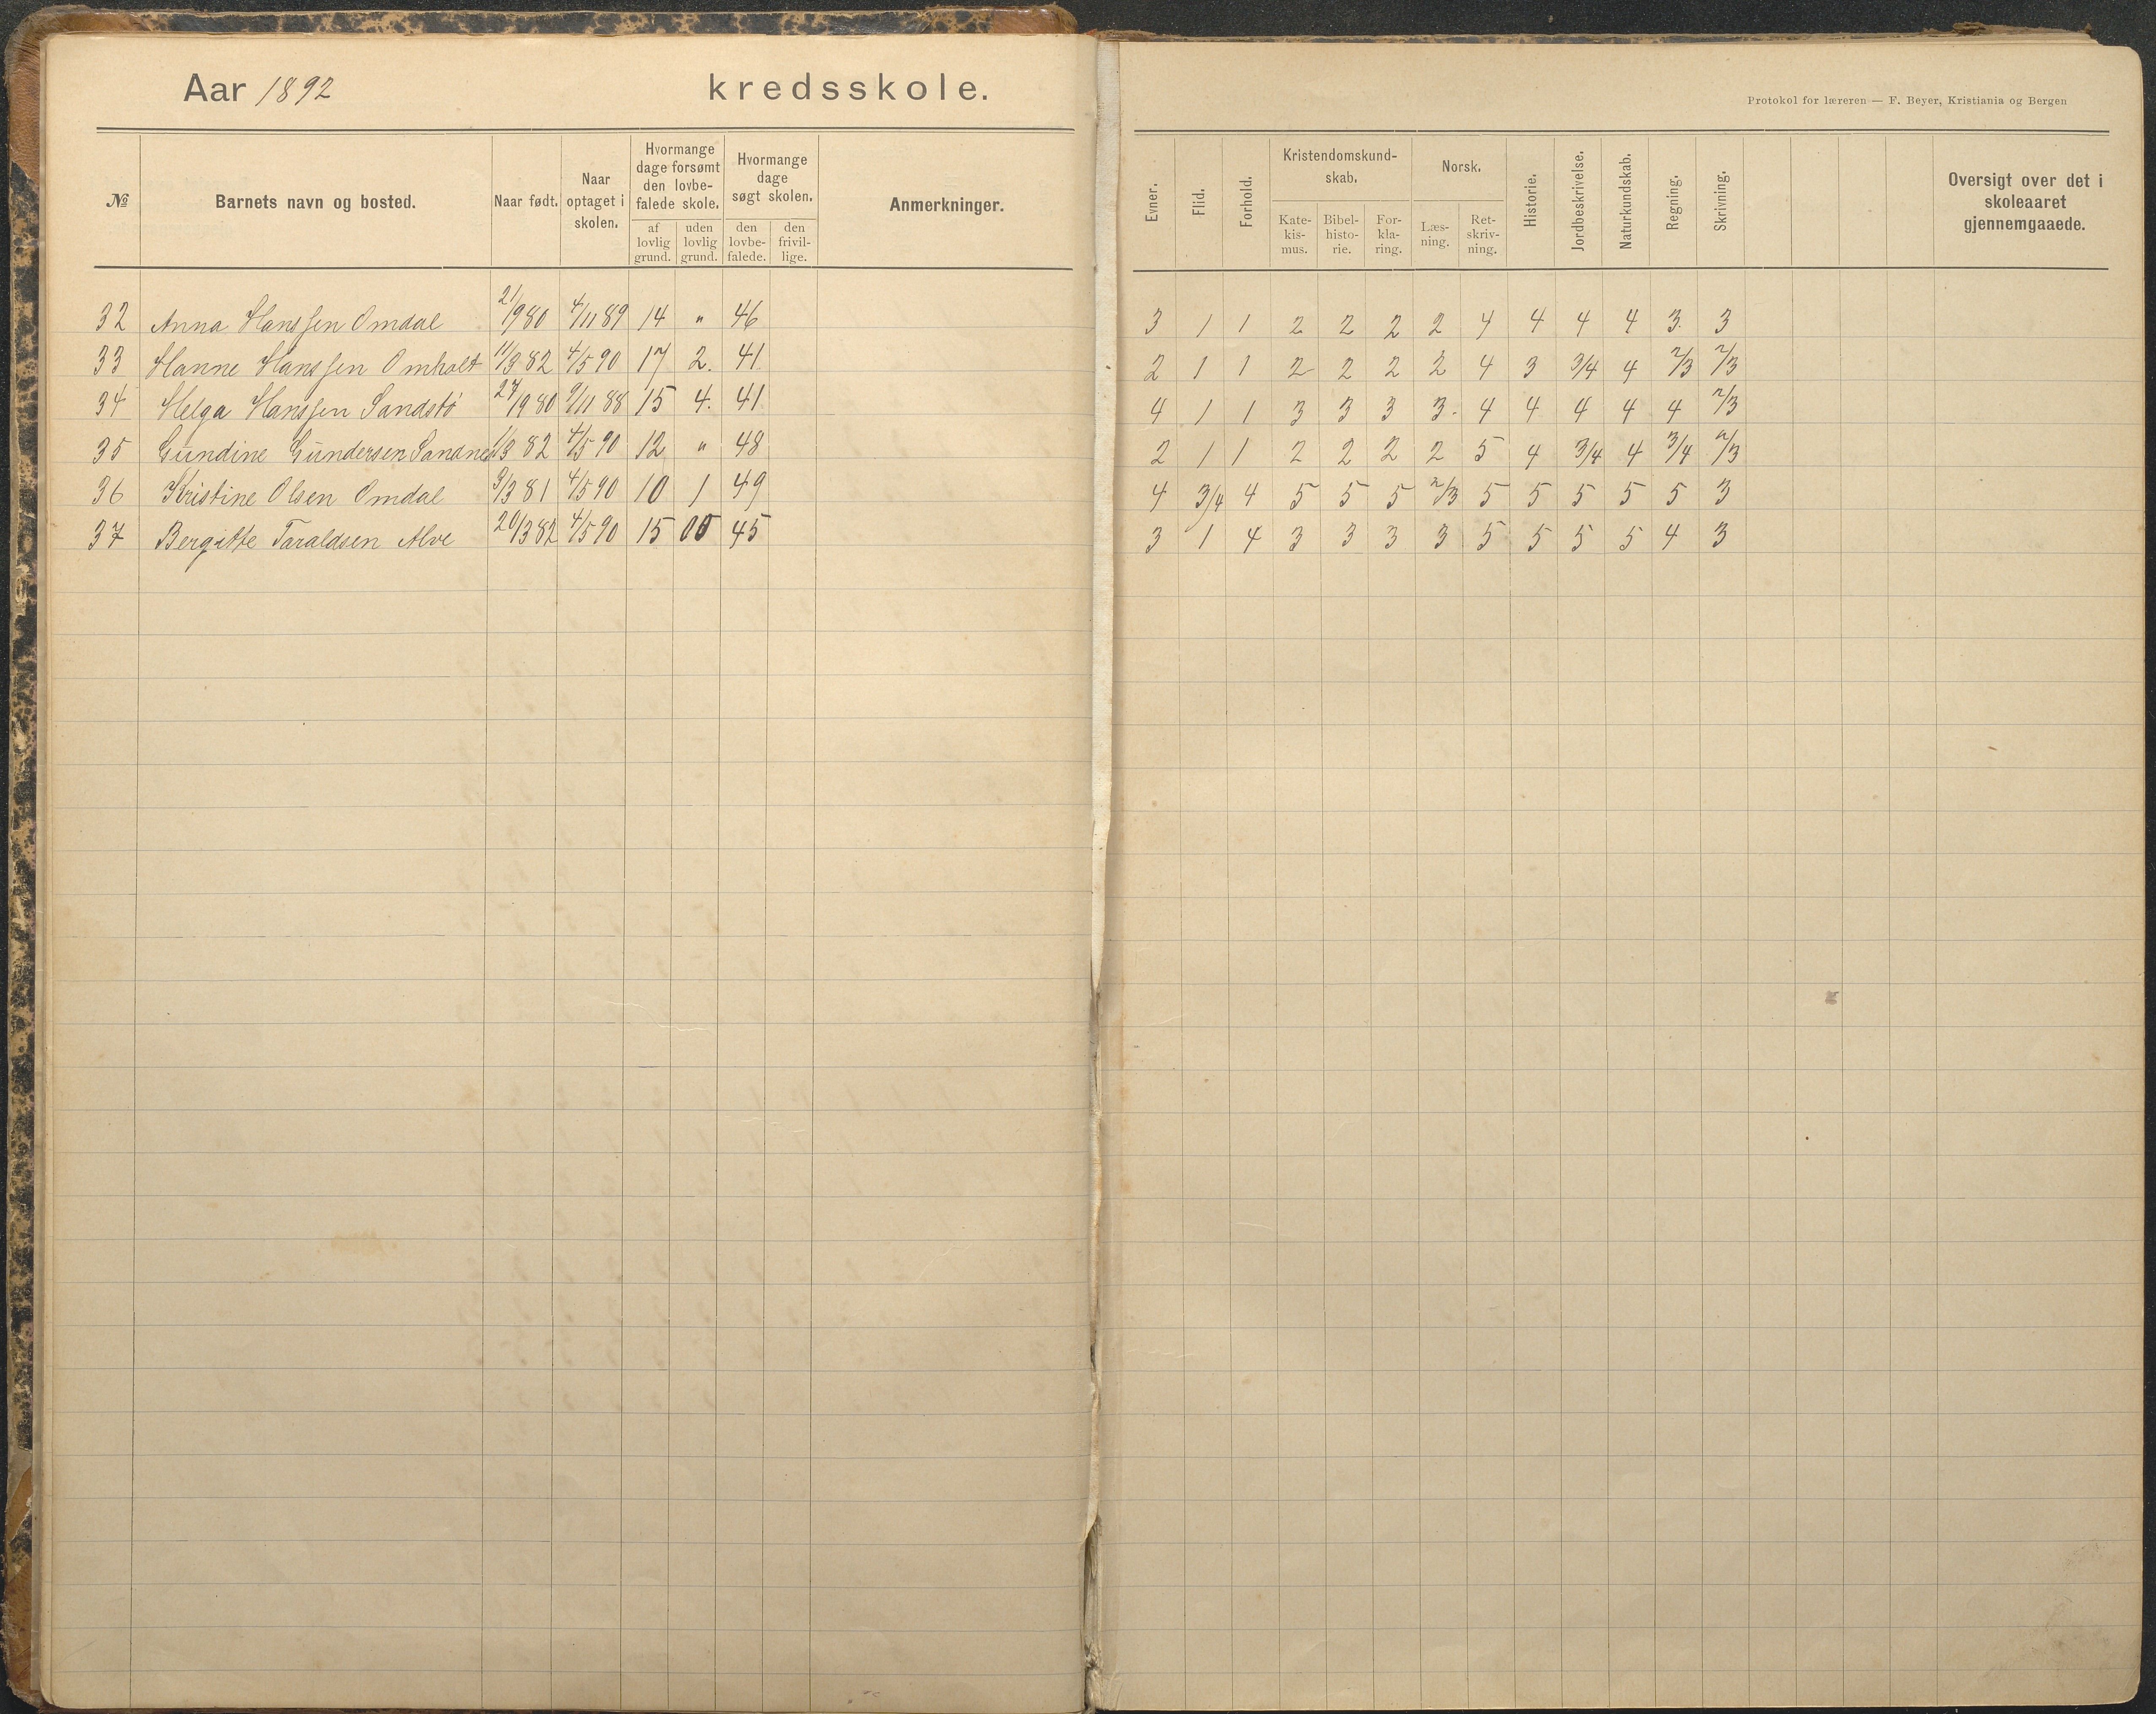 Aar 1892 kredsskole.
Protokol for læreren — F. Beyer, Kristiania og Bergen
№ Barnets navn og bosted. Naar født. Naar optaget i skolen. Hvormange dage forsømt den lovbefalede skole. af lovlig grund. uden lovlig grund. Hvormange dage søgt skolen. den lovbefalede. den frivillige. Anmerkninger. Evner. Flid. Forhold. Kristendomskundskab. Katekismus. Bibelhistorie. Forklaring. Norsk. Læsning. Retskrivning. Historie. Jordbeskrivelse. Naturkundskab. Regning. Skrivning. Oversigt over det i skoleaaret gjennemgaaede.
32 Anna Hanssen Omdal 21/9 80 4/11 89 14 " 46 3 1 1 2 2 2 2 4 4 4 4 3. 3
33 Hanne Hanssen Omholt 11/3 82 4/5 90 17 2. 41 2 1 1 2 2 2 2 4 3 3/4 4 2/3 2/3
34 Helga Hanssen Sandstö 27/9 80 9/11 88 15 4. 41 4 1 1 3 3 3 3. 4 4 4 4 4 2/3
35 Gundine Gundersen Sandnes 1/3 82 4/5 90 12 " 48 2 1 1 2 2 2 2 5 4 3/4 4 3/4 2/3
36 Kristine Olsen Omdal 3/3 81 4/5 90 10 1 49 4 3/4 4 5 5 5 2/3 5 5 5 5 5 3
37 Bergitte Taraldsen Alve 20/3 82 4/5 90 15 00 45 3 1 4 3 3 3 3 5 5 5 5 4 3